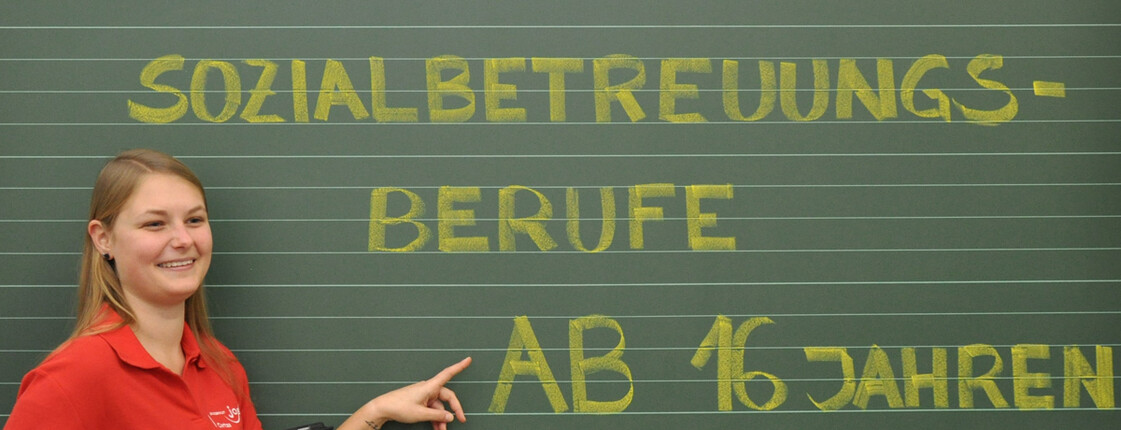 SOZIALBETREUUNGS-
BERUFE
AB 16 JAHREN